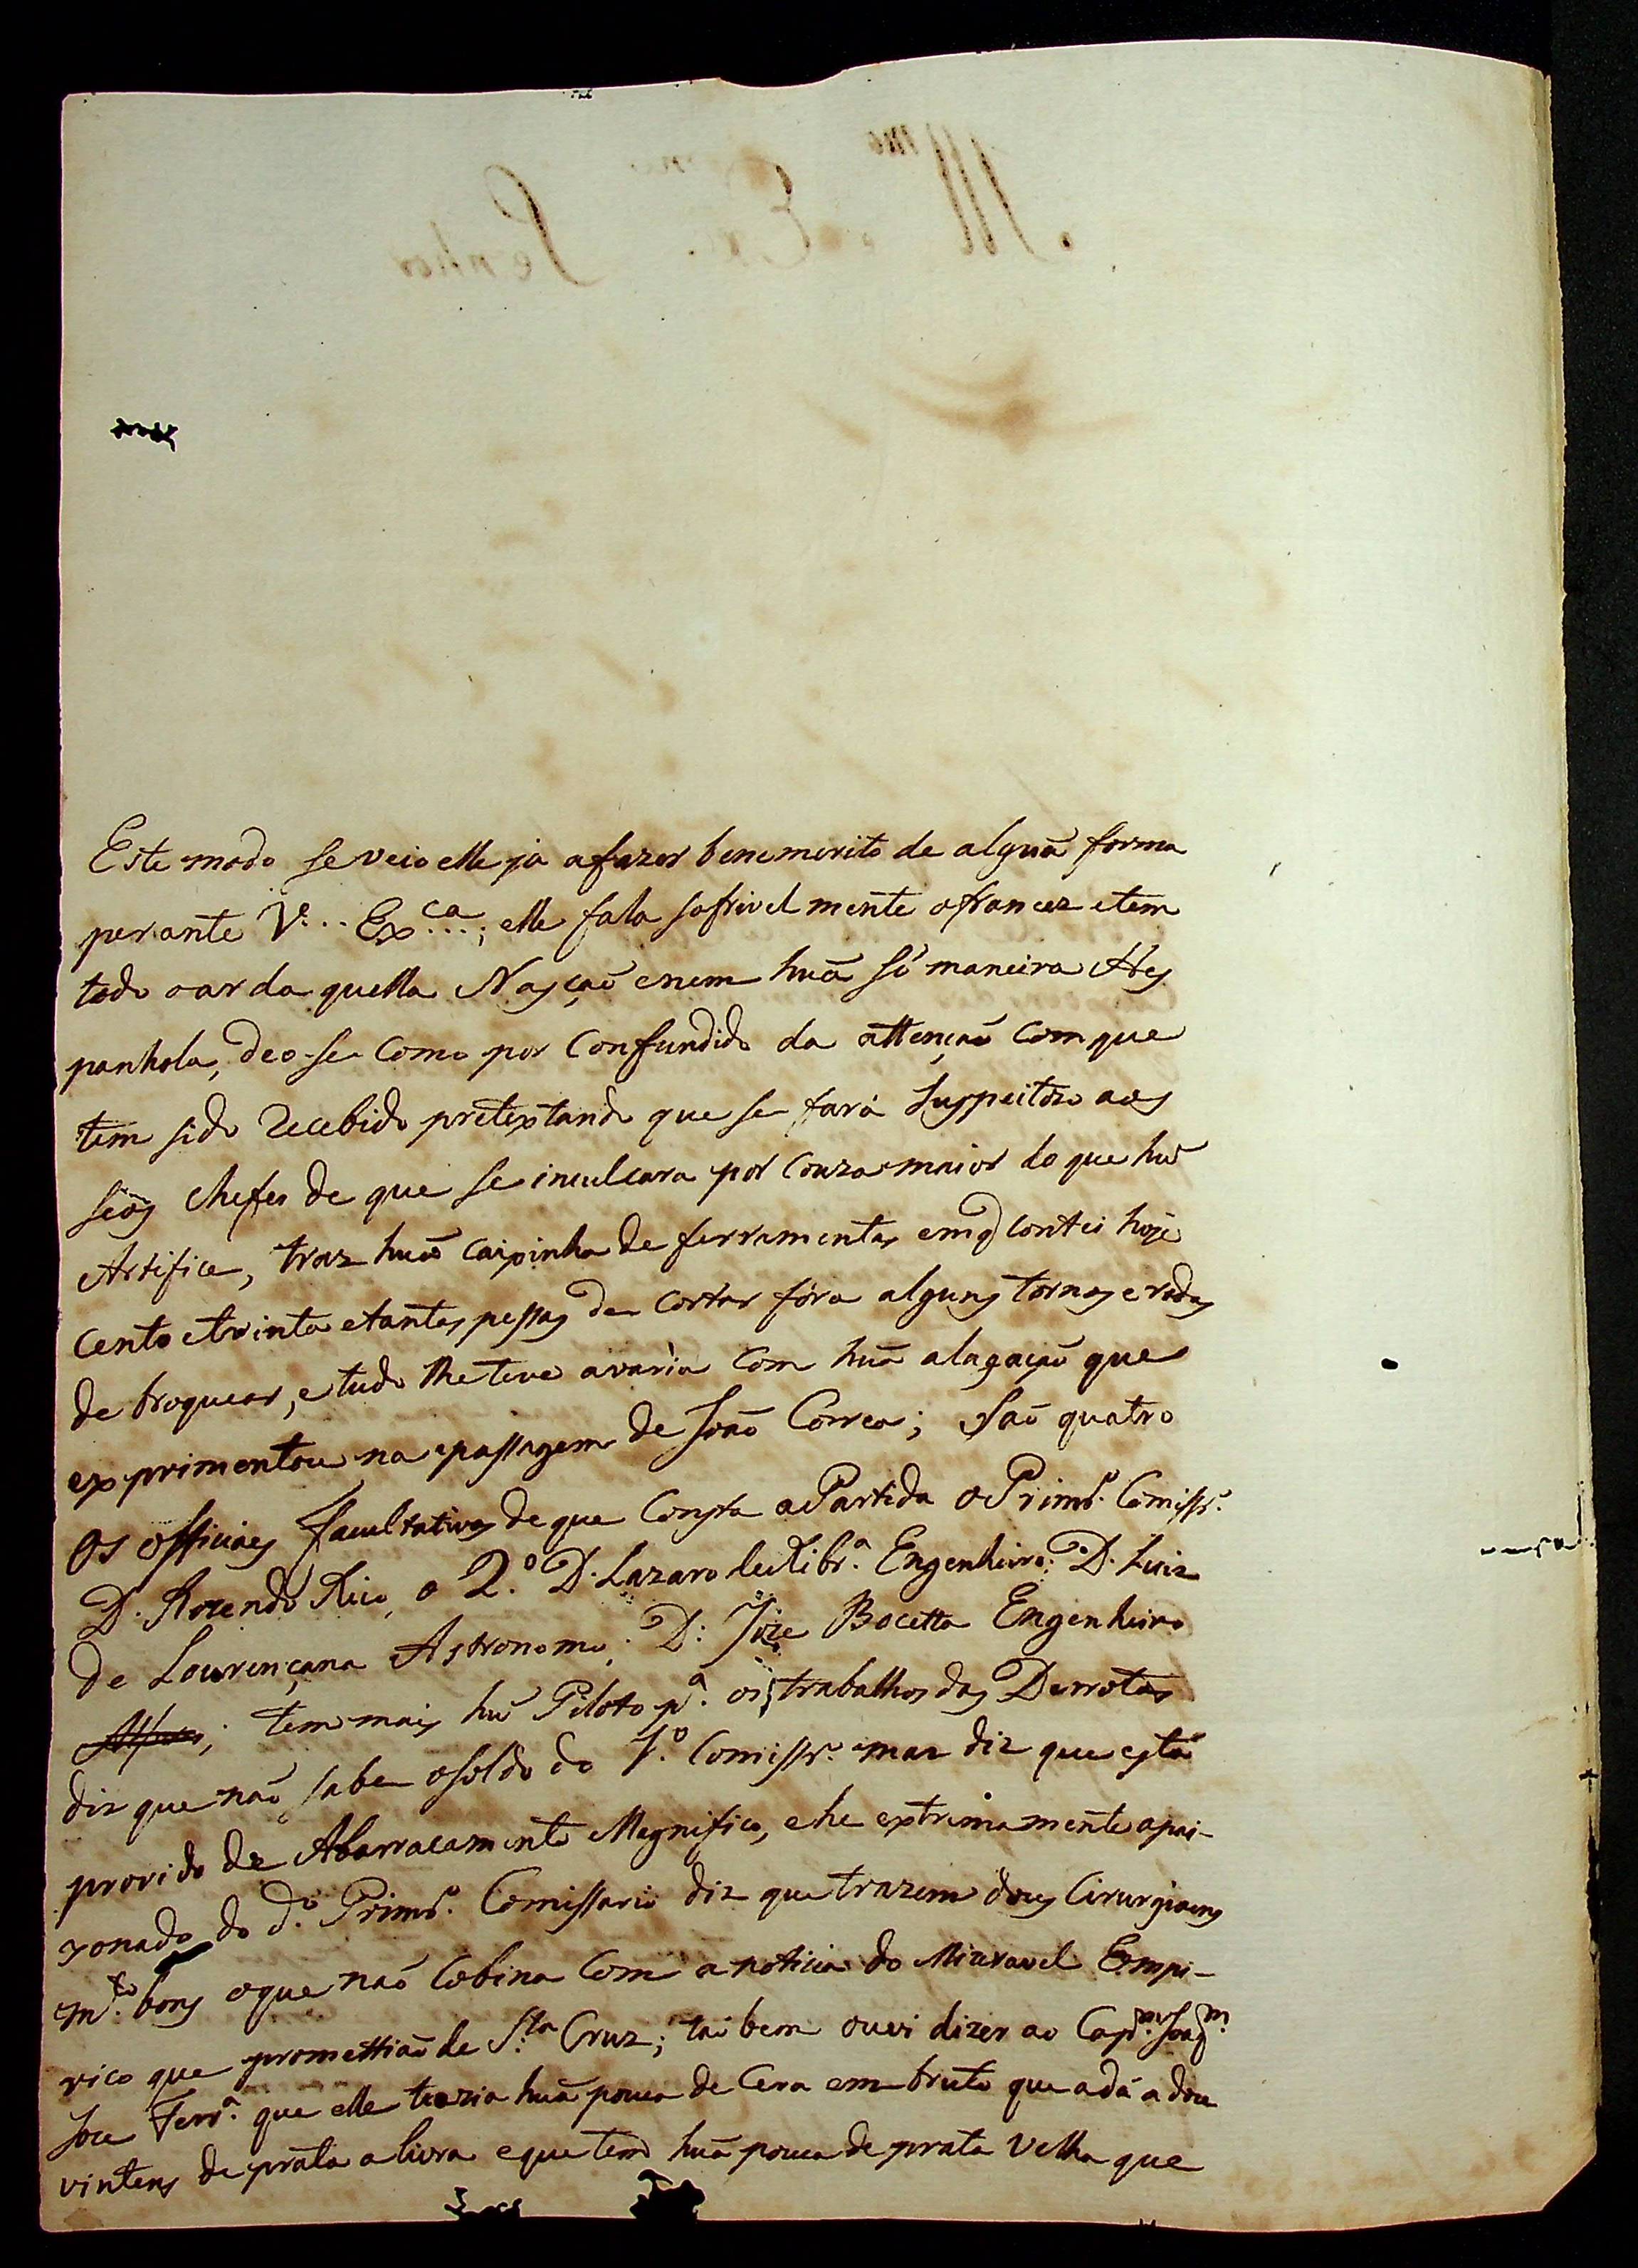 Este modo se veio elle ja a fazer benemerito de alguã forma
perante V.ª Ex.ca; elle fala sofrivel mente o francez e tem
todo o ar da quella Nasção e nem huã só maneira Hes
panhola, deo-se como por confundido da attenção com que
tem sido recebido pretextando que se fará suspeitozo aos
seos chefes de que se inculcara por couza maior do que hũ
Artifice, traz huã caixinha de ferramentas em q contei hoje
cento e trinta e tantas pessas de cortar fóra alguns tornos e rodas
de broquear, e tudo lhe teve avaria com huã alagação que
exprimentou na passagem de João Correa; São quatro
os officiaes facultativos de que consta a Partida o Primr.º Comissr.º
D. Rozendo Rico, o 2.º D. Lazaro de Ribr.ª Engenheiro; D. Luiz
de Lourençana Astronomo; D. Joze Bocetta Engenheiro
; tem mais hũ Piloto p.ª os trabalhos das Derrotas
diz que não sabe o soldo do 1.º Comissr.º mas diz que está
provido de Abarracamento Magnifico, e he extrema mente apai-
xonado do d.º Primr.º Comissario diz que trazem dous Cirurgiaens
m.to bons o que não cobina com a noticia do Mizeravel Empi-
rico que promettião de S.ta Cruz; taõ bem ouvi dizer ao Cap.m Joaq.m
Joze Ferr.ª que elle trazia huã pouca de Cera em bruto que a dá a dou
vintens de prata a livra e que tem huã pouca de prata velha que
Ill.mo e Ex.mo Senhor